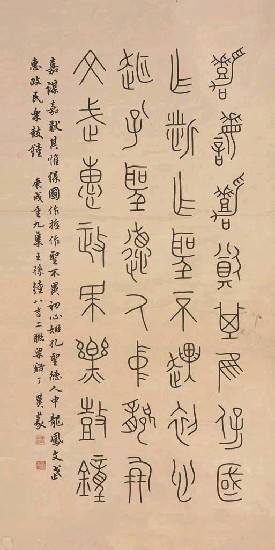 嘉謀嘉猷其惟保國
作哲作聖不初心
孔聖德人中龍鳳
文武惠政民樂鼓鐘
嘉謀嘉猷其惟保國作哲作聖不初心孔聖德人中龍鳳文武
惠政民樂鼓鐘 庚戌重九集王孫鐘八言二聯